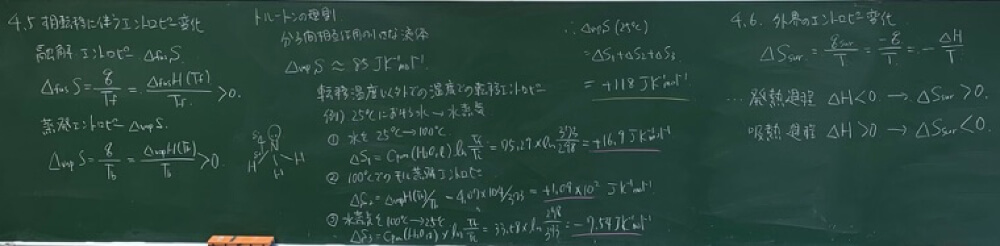 4.5 相転移に伴うエントロピー変化
融解エントロピー ΔfusS
ΔfusS = q/Tf = ΔfusH(Tf)/Tf > 0.
蒸発エントロピー ΔvapS.
ΔvapS = q/Tb = ΔvapH(Tb)/Tb > 0.
トルートンの規則
分子間相互作用の小さな液体
ΔvapS ≈ 85 JK⁻¹mol⁻¹
転移温度以外での温度での転移エントロピー
例) 25℃における水→水蒸気
① 水を25℃→100℃.
ΔS₁ = Cp,m(H₂O,l) ln Tf/Ti = 75.29 × ln 373/298 = +16.9 JK⁻¹mol⁻¹
② 100℃での蒸発エントロピー
ΔS₂ = ΔvapH(Tb)/Tb = 4.07×10⁴/373 = +1.09×10² JK⁻¹mol⁻¹
③ 水蒸気を100℃→25℃
ΔS₃ = Cp,m(H₂O,g) × ln Tf/Ti = 33.58 × ln 298/373 = -7.54 JK⁻¹mol⁻¹
∴ ΔvapS(25℃)
= ΔS₁+ΔS₂+ΔS₃
= +118 JK⁻¹mol⁻¹
4.6. 外界のエントロピー変化
ΔSsur = qsur/T = -q/T = -ΔH/T
… 発熱過程 ΔH<0 → ΔSsur>0.
吸熱過程 ΔH>0 → ΔSsur<0.